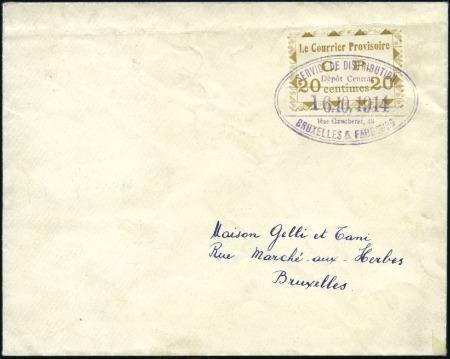 Le Courrier Provisoire
SERVICE DE DISTRIBUTION
C P
Dépôt Central
20 centimes 20
16.10.1914
Rue Gaucheret, 42
BRUXELLES & FAUBOURGS
Maison Gelli et Tani
Rue Marché-aux-Herbes
Bruxelles